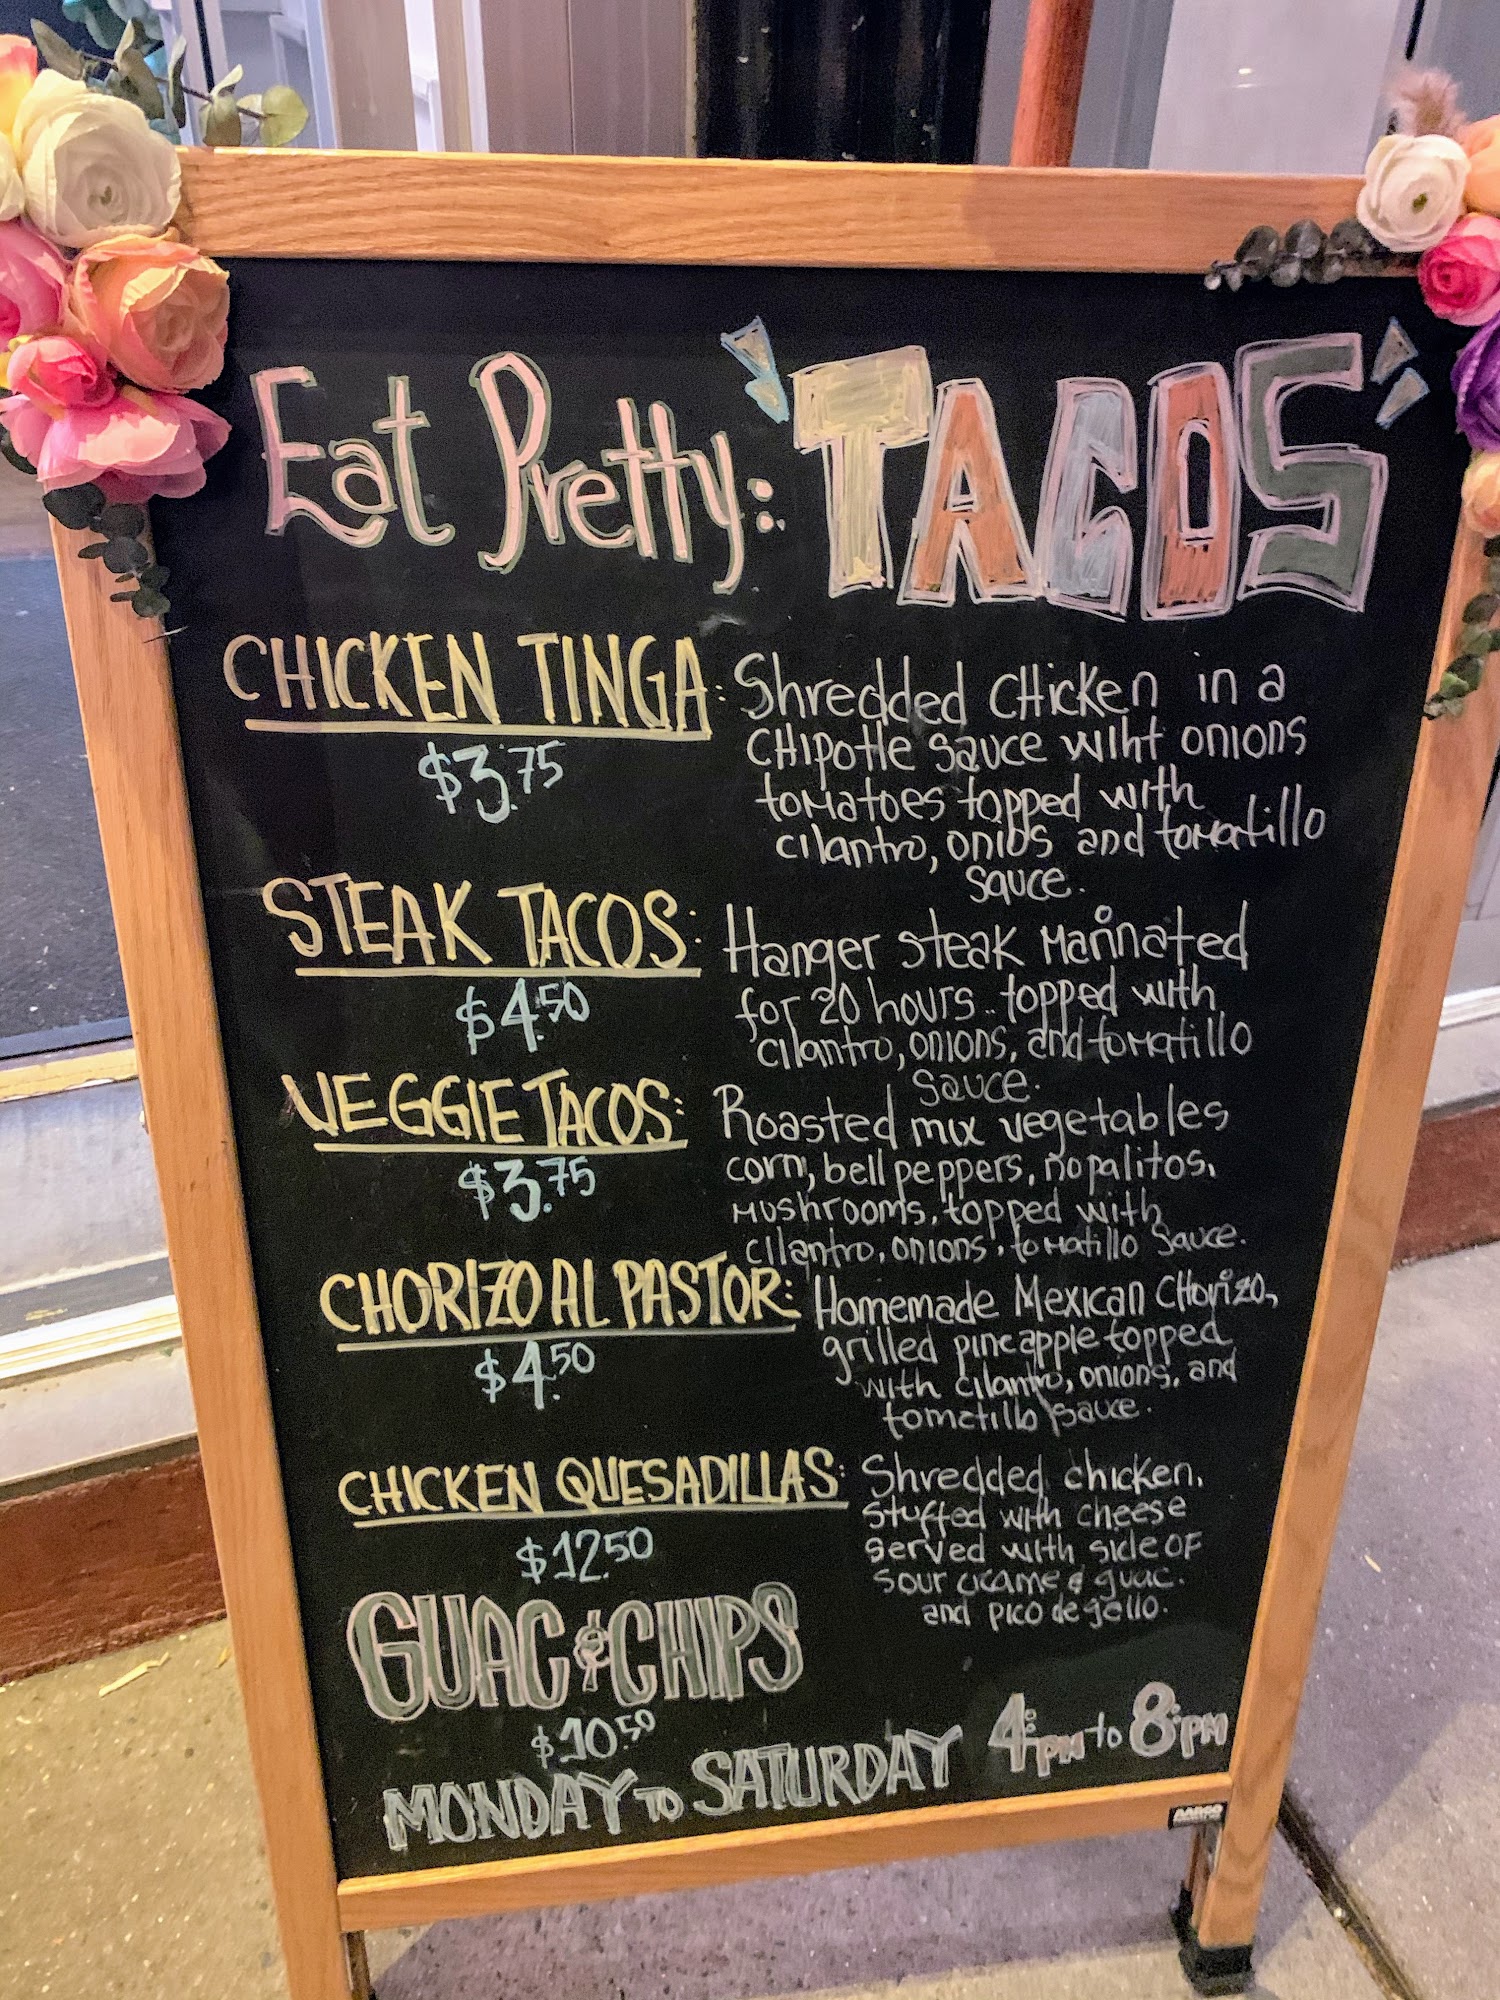 Eat Pretty: "TACOS"
CHICKEN TINGA: Shredded CHicken in a
$3.75
CHIPotle sauce wiht onions
tomatoes topped with
cilantro, onios and tomatillo
sauce.
STEAK TACOS: Hanger steak Marinnated
$4.50
for 20 hours.. topped with
cilantro, onions, and tomatillo
sauce.
VEGGIE TACOS: Roasted mix vegetables
$3.75
corn, bell peppers, nopalitos,
mushrooms, topped with
cilantro, onions, tomatillo sauce.
CHORIZO AL PASTOR: Homemade Mexican CHorizo,
$4.50
grilled pineapple topped
with cilantro, onions, and
tomatillo sauce.
CHICKEN QUESADILLAS: Shredded chicken,
stuffed with cheese
$12.50
served with side OF
sour crame & guac.
and pico de gello.
GUAC & CHIPS
$10.50
MONDAY TO SATURDAY 4:PM to 8:PM
AARCO